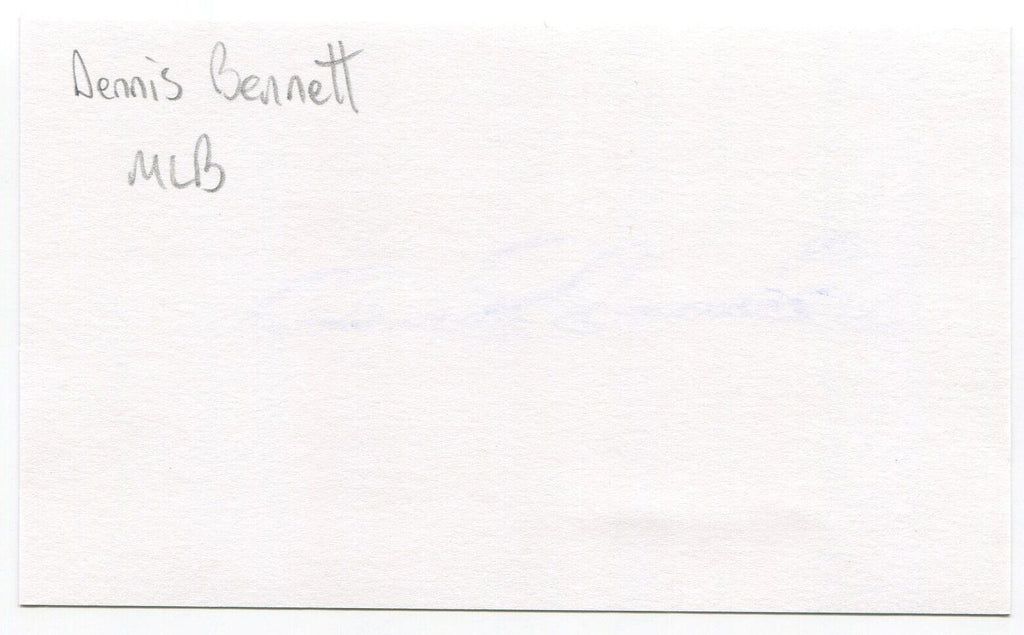 Dennis Bennett
MLB